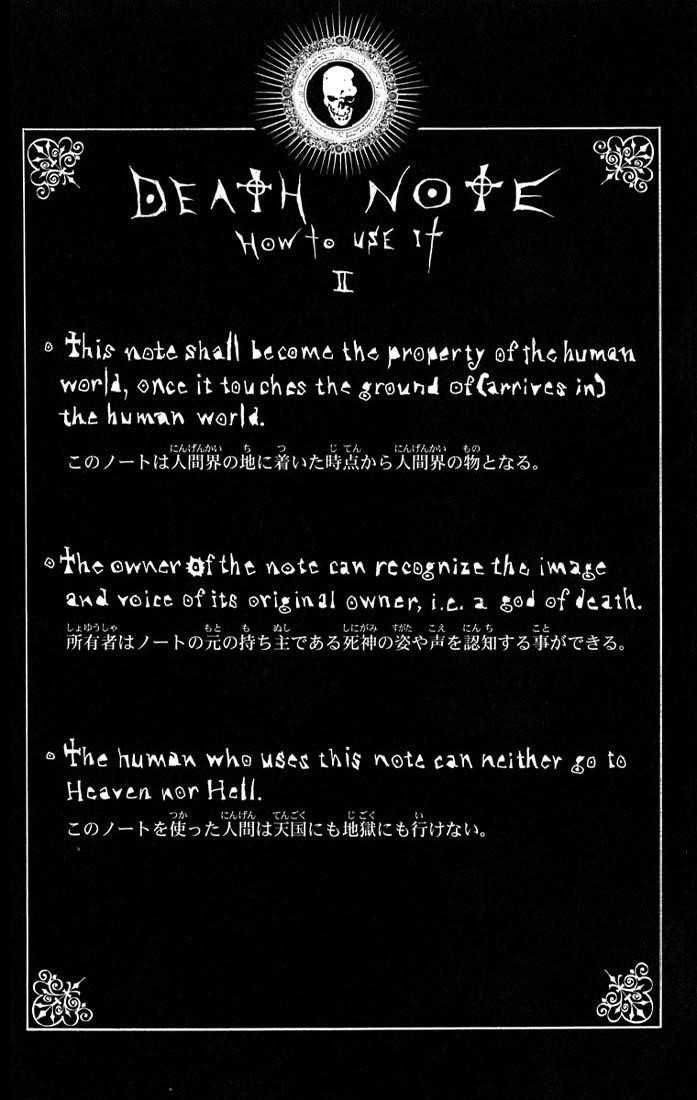 DEATH NOTE
HOW to USE It
II
This note shall become the property of the human
world, once it touches the ground of (arrives in)
the human world.
にんげんかい ち つ じてん にんげんかい もの
このノートは人間界の地に着いた時点から人間界の物となる。
The owner of the note can recognize the image
and voice of its original owner, i.e. a god of death.
しょゆうしゃ もと も ぬし しにがみ すがた こえ にんち こと
所有者はノートの元の持ち主である死神の姿や声を認知する事ができる。
The human who uses this note can neither go to
Heaven nor Hell.
つか にんげん てんごく じごく い
このノートを使った人間は天国にも地獄にも行けない。